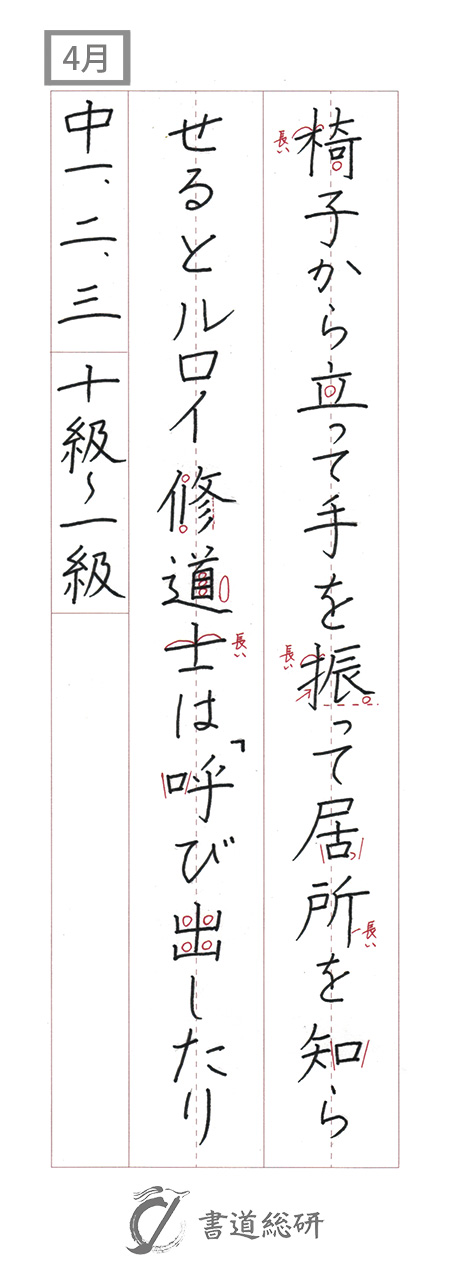 4月
椅子から立って手を振って居所を知ら
せるとルロイ修道士は「呼び出したり
中一、二、三 十級〜一級
長い
長い
長い
長い
書道総研